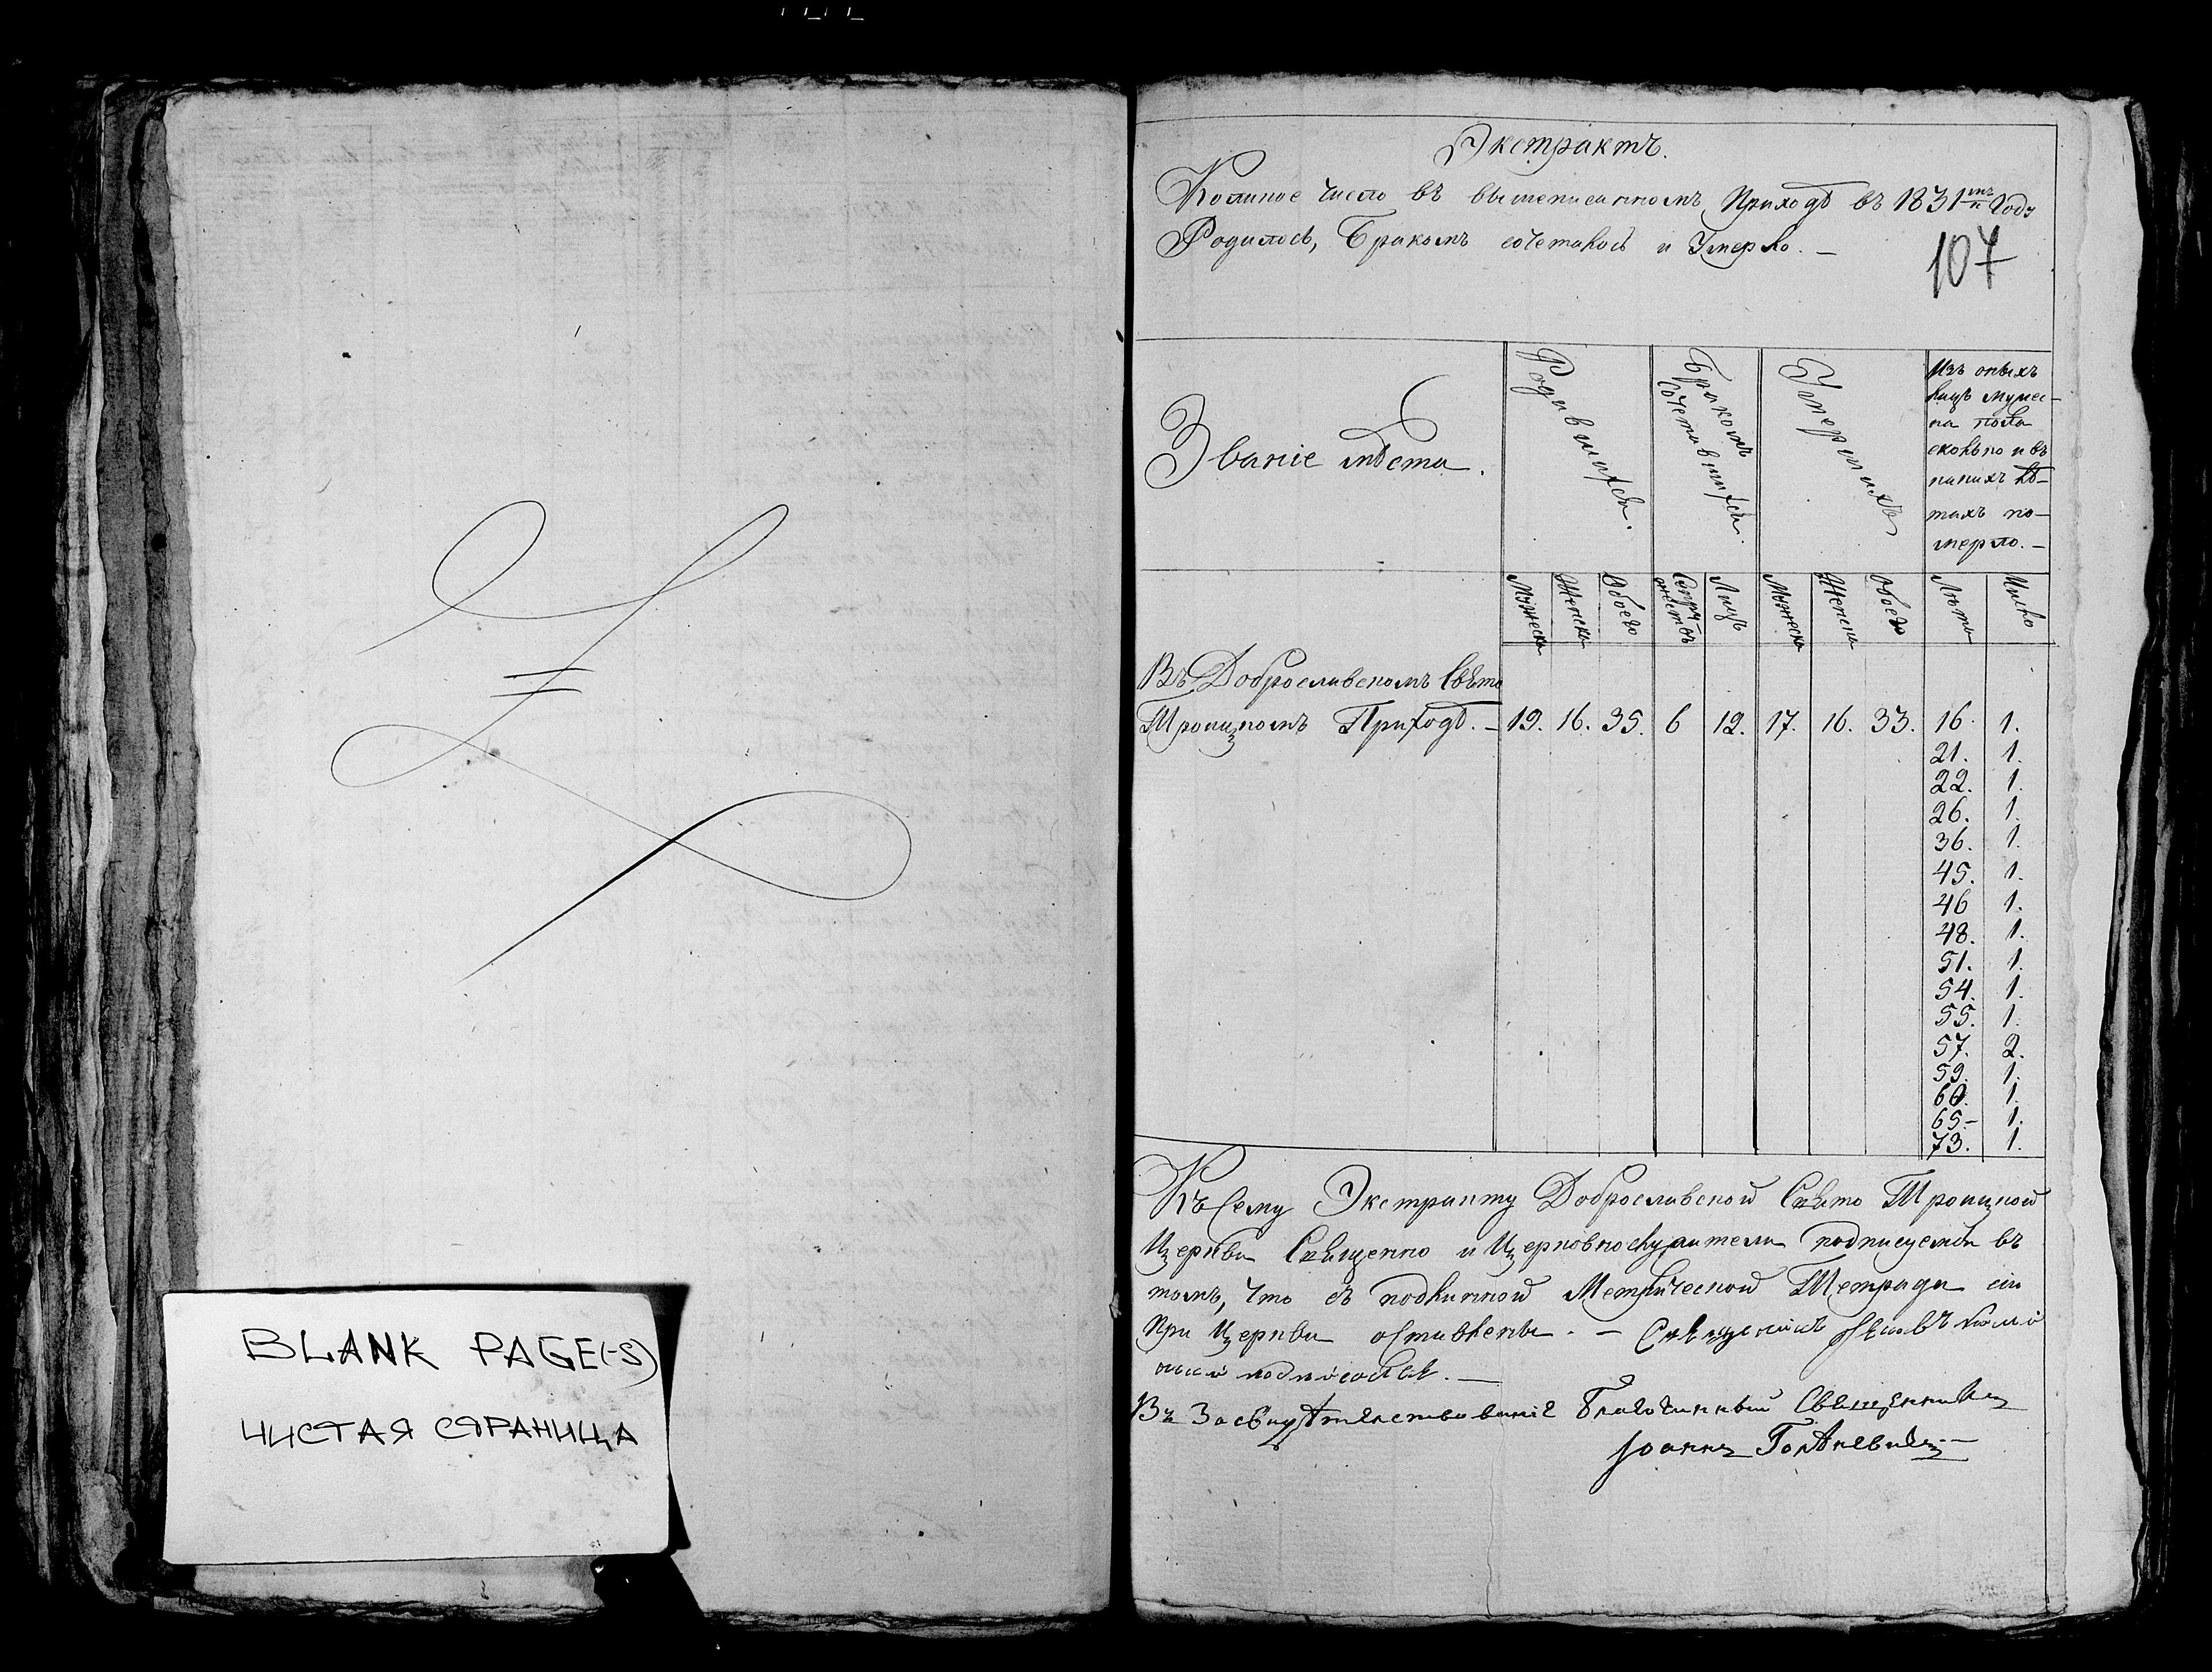 BLANK PAGE(-S)
ЧИСТАЯ СТРАНИЦА
Экстрактъ.
Коликое число въ вышеписанномъ Приходѣ въ 1831мъ Году
Родилось, Бракомъ сочеталось и Умерло. —
107
Званіе мѣста.
Родившихся.
Бракомъ
Сочетавшихся.
Умершихъ
Изъ оныхъ
лицъ мужес-
ка пола
сколько и въ
какихъ лѣ-
тахъ по-
мерло. —
Мужеска
Женска
Обоего
Супру-
жествъ
Лицъ
Мужеска
Женска
Обоего
Лѣта
Число
Въ Доброславскомъ Свѣто
Троицкомъ Приходѣ. — 19. 16. 35. 6 12. 17. 16. 33. 16. 1.
21. 1.
22. 1.
26. 1.
36. 1.
45. 1.
46 1.
48. 1.
51. 1.
54. 1.
55. 1.
57. 2.
59. 1.
60. 1.
65.- 1.
73. 1.
Къ Сему Экстракту Доброславской Свято Троицкой
Церкви Священно и Церковнослужители подписуемся въ
томъ, что съ подлинной Метрической Тетради сіи
При Церкви оставлены. — Священникъ
подписался. —
Въ Засвидѣтелствованіе Благочинный Священникъ
Іоаннъ